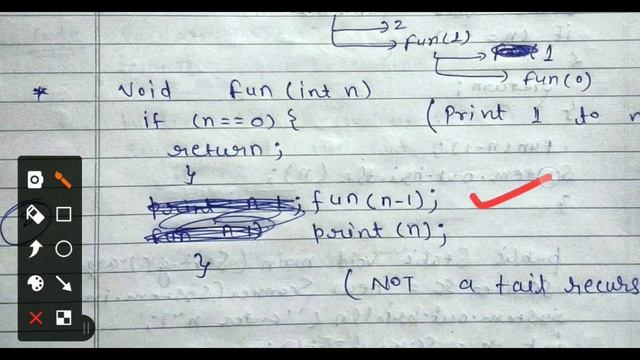 → 2
→ fun(1)
→ 1
→ fun(0)
* Void fun (int n)
if (n==0) { (Print 1 to n
return;
}
fun(n-1);
print (n);
}
(NOT a tail recurs